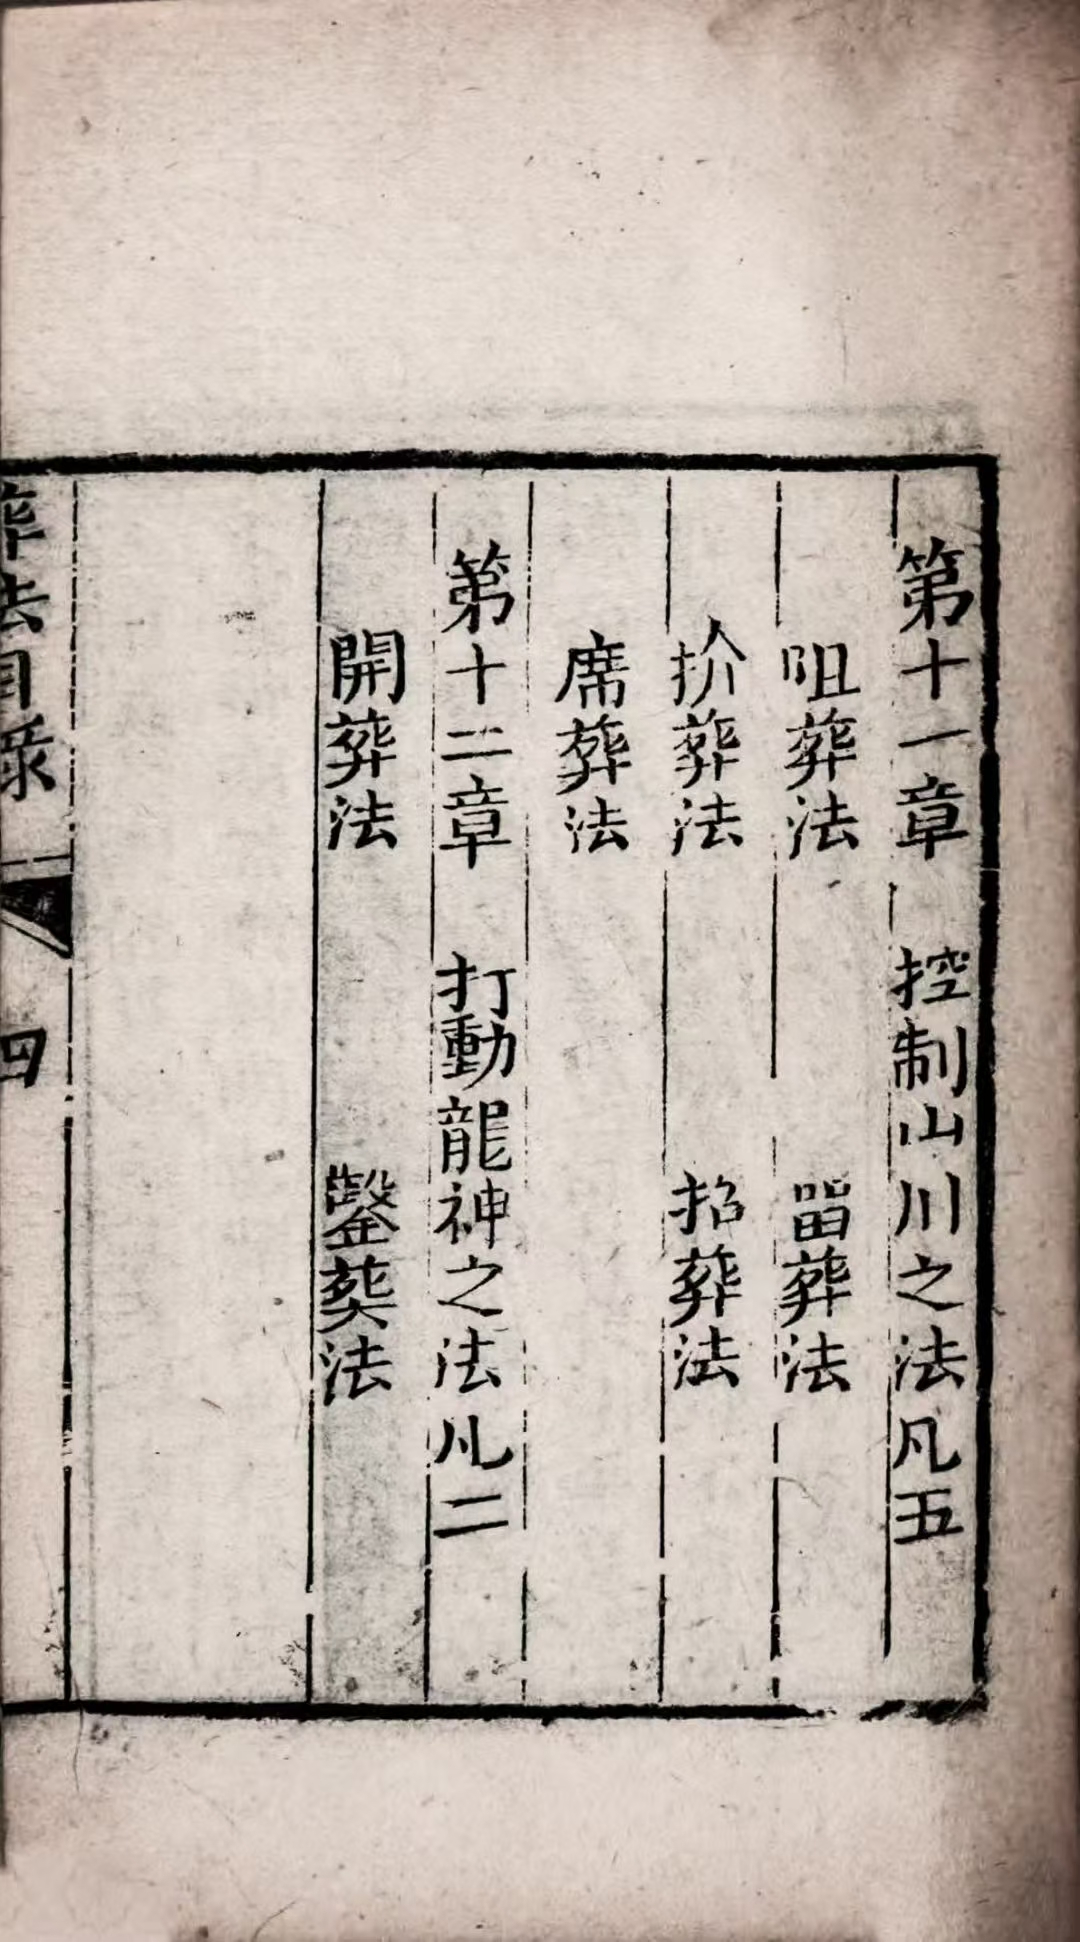 第十一章 控制山川之法凡五
咀葬法 畱葬法
扴葬法 招葬法
席葬法
第十二章 打動龍神之法凡二
開葬法 鑿葬法
葬法目錄 四